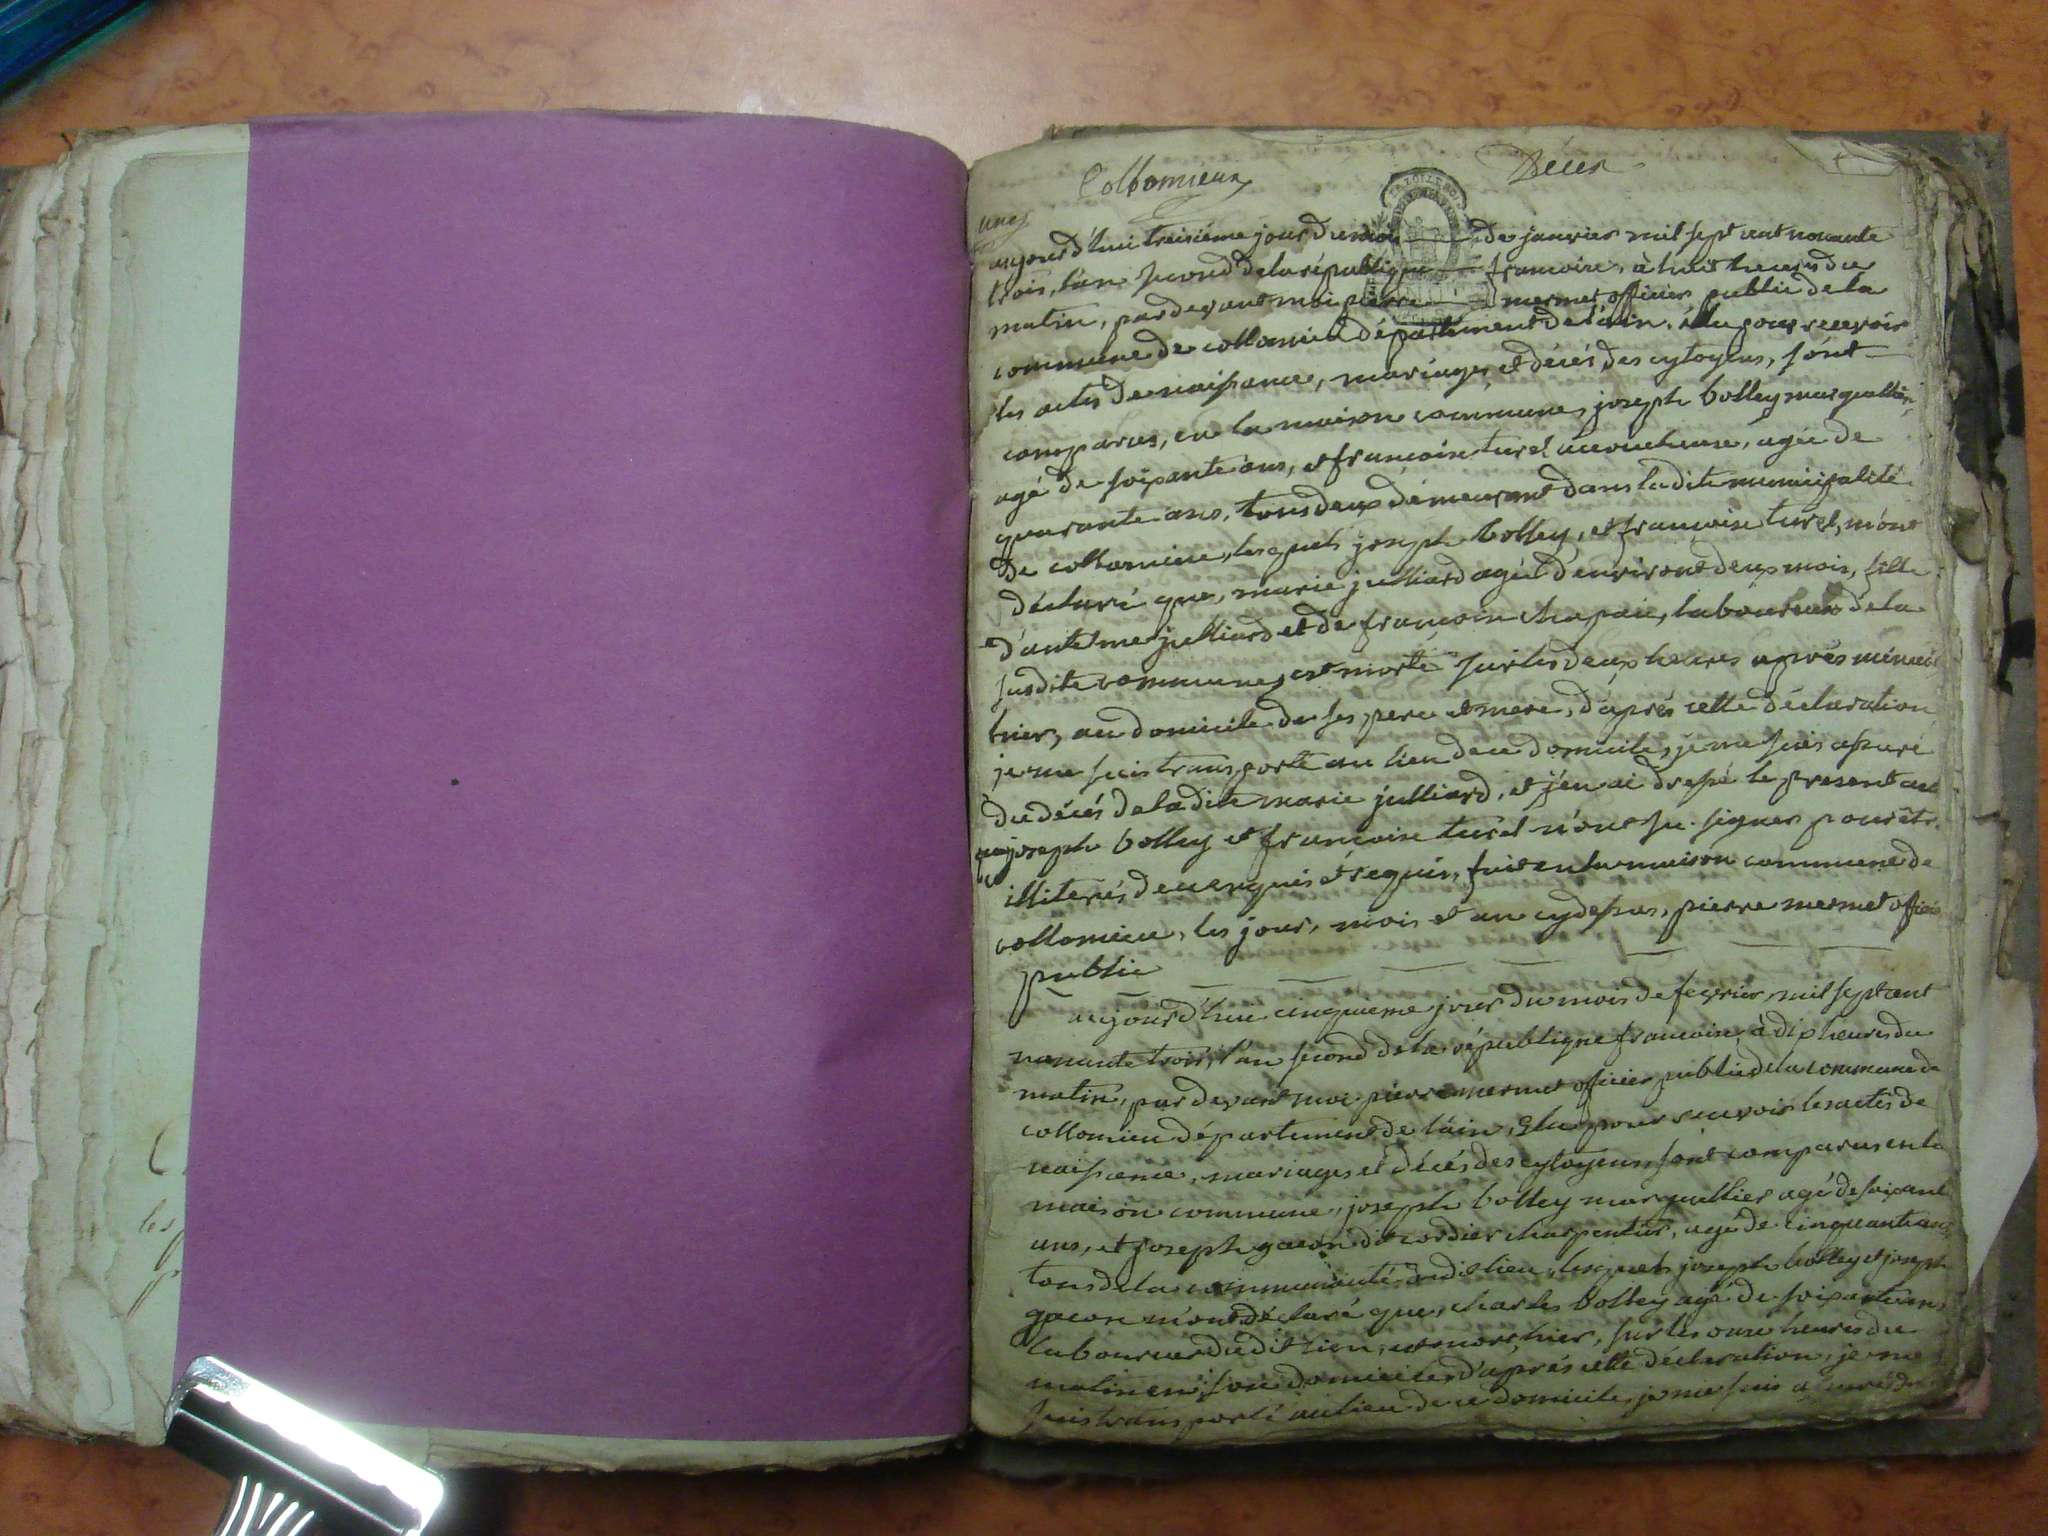 Collomieux
Décès
aujourd'hui treisiéme jour du mois de janvier mil sept cent nonante
trois, l'an second de la république francoise, à huit heures du
matin, pardevant moi pierre mermet officier public de la
commune de collomieu département de l'ain, élu pour recevoir
les actes de naissance, mariages et décés des cytoyens, sont
comparus, en la maison commune, joseph bolley marguillier,
agé de soixante ans, et francoise turel accoucheuse, agée de
quarante ans, tous deux démeurant dans la dite municipalité
de collomieu, lesquels joseph bolley, et francoise turel, m'ont
déclaré que, marie julliard agée d'environt deux mois, fille
d'antelme julliard et de francoise chapuie, laboureur de la
susdite commune, est morte sur les deux heures aprés minuit
hier, au domicile de ses pere et mere, d'aprés cette déclaration
je me suis transporté au lieu de ce domicile, je me suis assuré
du décés de la dite marie julliard, et j'en ai dressé le present acte
que joseph bolley et francoise turel n'ont su signer pour etre
illiterés de ce enquis et requis, fait en la maison commune de
collomieu, les jour, mois et an cy dessus, pierre mermet officier
public
aujourd'hui cinquieme jour du mois de fevrier mil sept cent
nonante trois, l'an second de la république francoise, à dix heures du
matin, par devant moi pierre mermet officier public de la commune de
collomieu département de l'ain, élu pour recevoir les actes de
naissance, mariages et décés des cytoyens, sont comparus en la
maison commune, joseph bolley marguillier agé de soixante
ans, et joseph gacon dit cordier charpentier, agé de cinquante ans,
tous de la communauté dudit lieu, lesquels joseph bolley et joseph
gacon m'ont déclaré que, charles bolley agé de soixante ans,
laboureur dudit lieu, est mort hier, sur les onze heures du
matin en son domicile, d'aprés cette déclaration, je me
suis transporté au lieu de ce domicile, je me suis assuré du